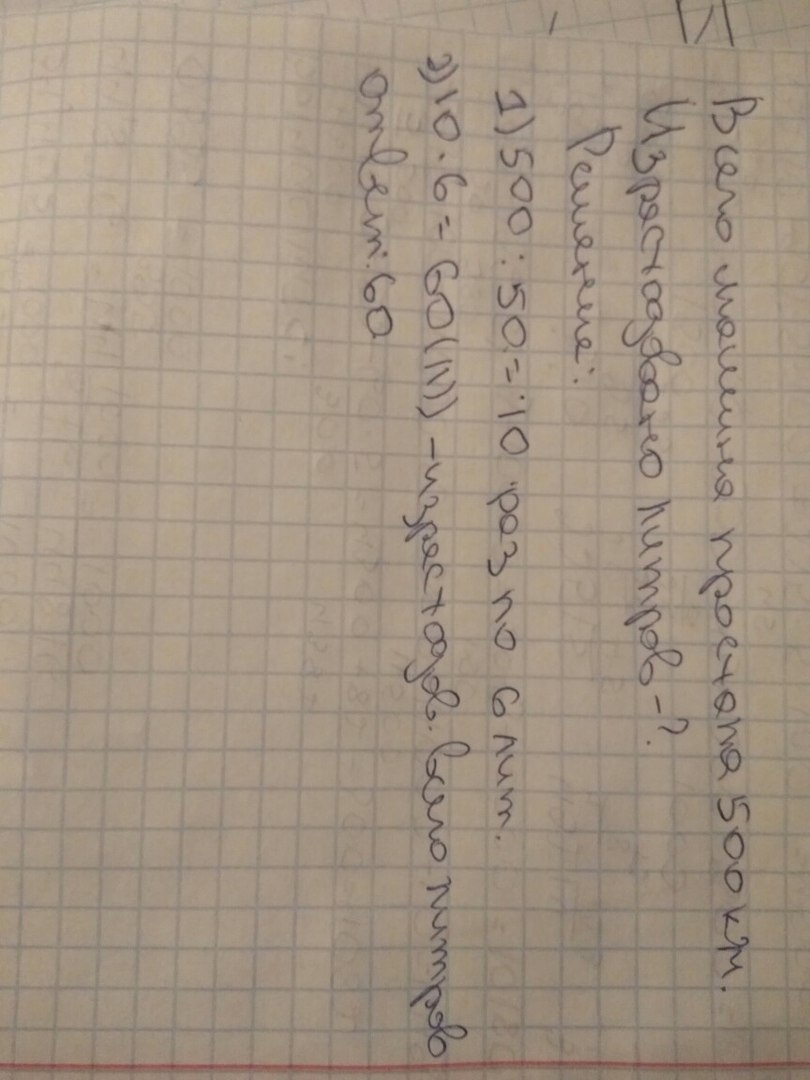 Всего машина проехала 500 км.
Израсходовано литров -?
Решение:
1) 500 : 50 = 10 раз по 6 лит.
2) 10 . 6 = 60 (л) - израсходов. всего литров
ответ: 60